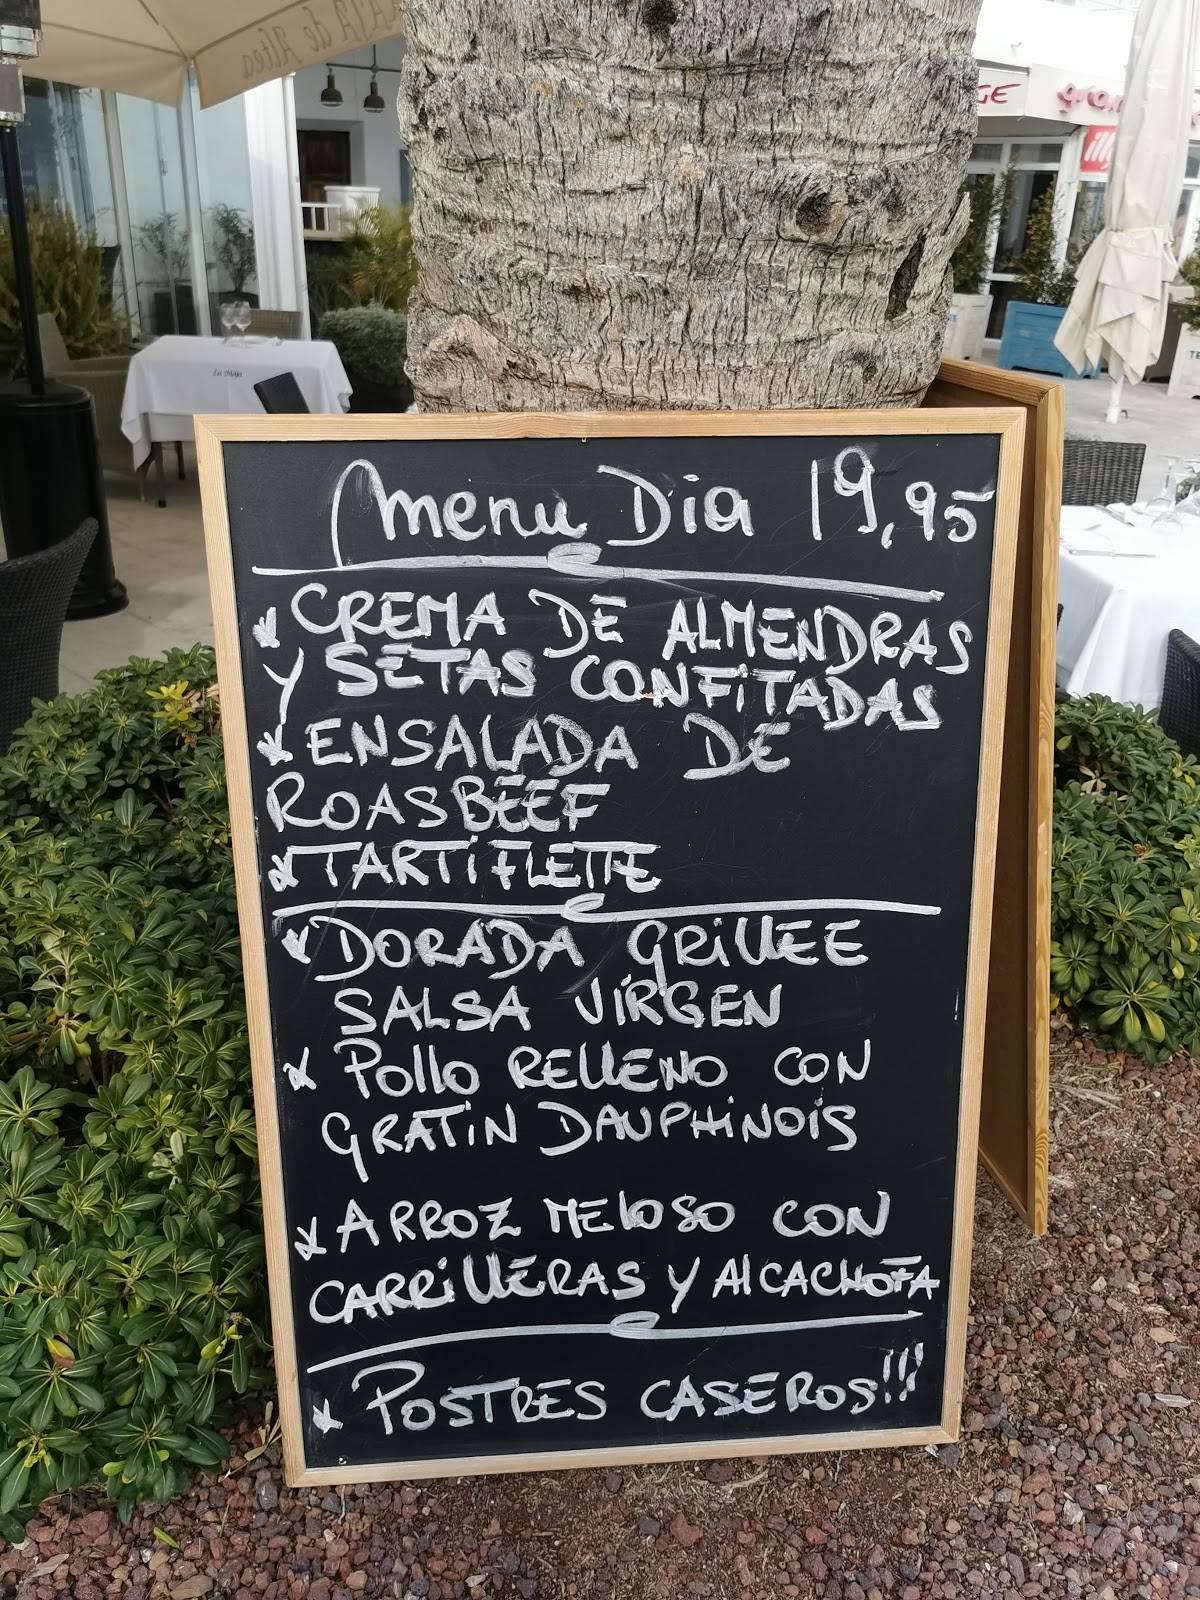 de Altea
La Maja
GE
gran
illy
Menu Dia 19,95
* CREMA DE ALMENDRAS
Y SETAS CONFITADAS
* ENSALADA DE
ROASBEEF
* TARTIFLETTE
* DORADA GRILLEE
SALSA VÍRGEN
* Pollo RELLENO CON
GRATIN DAUPHINOIS
* ARROZ MELOSO CON
CARRILLERAS Y AlCACHOFA
* POSTRES CASEROS!!!